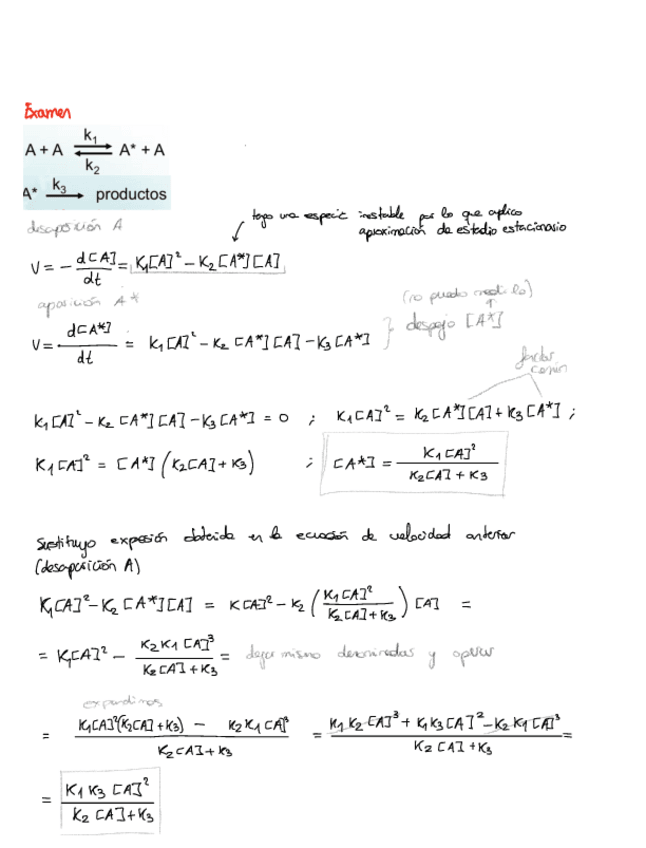 Examen
A + A ⇌ A* + A
k₁
k₂
A* → productos
k₃
desaparición A
tengo una especie inestable por lo que aplico
aproximación de estado estacionario
V = - d[A]/dt = K₁[A]² - K₂[A*][A]
aparición A*
(no puedo medirlo)
V = d[A*]/dt = K₁[A]² - K₂[A*][A] - K₃[A*] } despejo [A*]
factor
común
K₁[A]² - K₂[A*][A] - K₃[A*] = 0 ; K₁[A]² = K₂[A*][A] + K₃[A*] ;
K₁[A]² = [A*] (K₂[A] + K₃) ; [A*] = K₁[A]² / K₂[A] + K₃
Sustituyo expresión obtenida en la ecuación de velocidad anterior
(desaparición A)
K₁[A]² - K₂[A*][A] = K[A]² - K₂ (K₁[A]² / K₂[A] + K₃) [A] =
= K₁[A]² - K₂K₁[A]³ / K₂[A] + K₃ = dejar mismo denominador y operar
expandimos
= K₁[A]²(K₂[A] + K₃) - K₂K₁[A]³ / K₂[A] + K₃ = K₁K₂[A]³ + K₁K₃[A]² - K₂K₁[A]³ / K₂[A] + K₃ =
= K₁K₃[A]² / K₂[A] + K₃